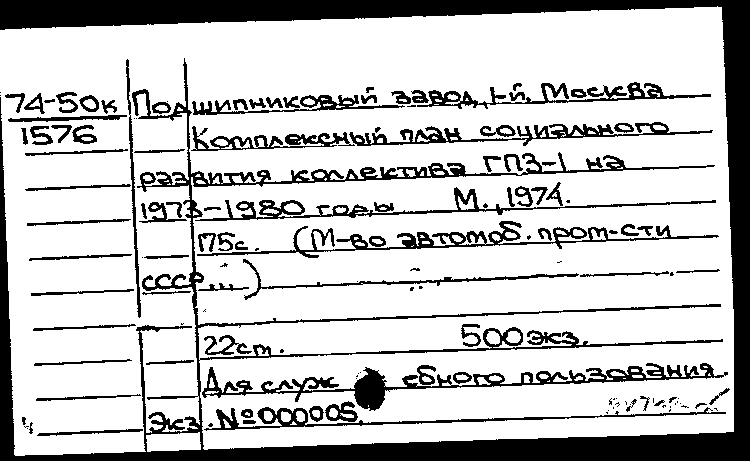 74-50к Подшипниковый завод, 1-й. Москва
1576 Комплексный план социального
развития коллектива ГПЗ-1 на
1973-1980 годы М., 1974.
175с. (М-во автомоб. пром-сти
СССР...)
22см. 500экз.
Для служебного пользования.
Экз. №000005.